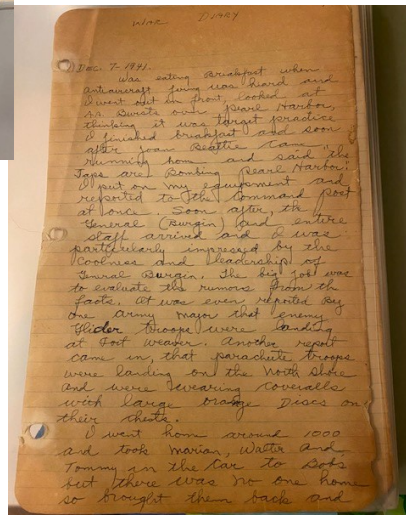 War Diary
Dec. 7-1941.
Was eating Breakfast when
antiaircraft firing was heard and
I went out in front, looked at
AA Bursts over Pearl Harbor,
thinking it was target practice
I finished breakfast and soon
after Joan Beattie came
running home and said "the
Japs are Bombing Pearl Harbor!
I put on my equipment and
reported to the Command post
at once. Soon after, the
General (Burgin) and entire
staff arrived and I was
particularly impressed by the
coolness and leadership of
General Burgin. The big job was
to evaluate the rumors from the
facts. It was even reported by
one army major that enemy
Glider troops were landing
at Fort Weaver. Another report
came in, that parachute troops
were landing on the North Shore
and were wearing coveralls
with large orange Discs on
their chests.
I went home around 1000
and took Marian, Walter and
Tommy in the car to Bobs
but there was no one home
so brought them back and